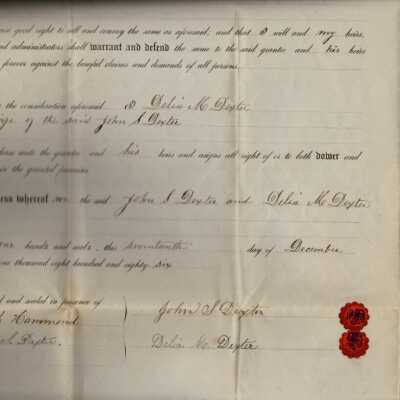 have good right to sell and convey the same as aforesaid, and that I will and my heirs,
and administrators shall warrant and defend the same to the said grantee and his heirs
forever against the lawful claims and demands of all persons.
the consideration aforesaid I Delia M. Dexter
of the said John S Dexter
unto the grantee and his heirs and assigns all right of or to both dower and
in the granted premises
whereof we the said John S Dexter and Delia M Dexter
hands and seals this seventeenth day of December
one thousand eight hundred and eighty six
and sealed in presence of
Hammond John S Dexter
S. Dexter. Delia M. Dexter